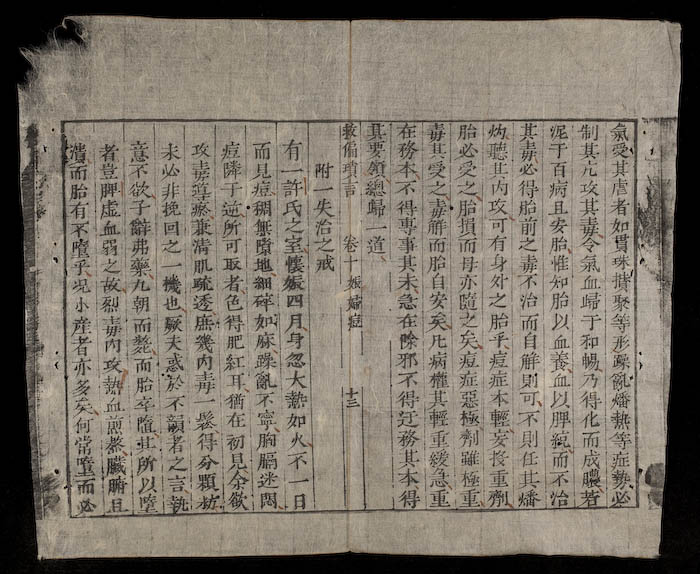 氣受其虐者如貫珠攢聚等形躁亂燔熱等症勢必
制其亢攻其毒令氣血歸于和暢乃得化而成膿若
泥于百病且安胎惟知胎以血養血以脾統而不治
其毒必得胎前之毒不治而自解則可不則任其燔
灼聽其內攻可有身外之胎乎痘症本輕妄投重劑
胎必受之胎損而母亦隨之矣痘症惡極劑雖極重
毒其受之毒解而胎自安矣凡病權其輕重緩急重
在務本不得專事其末急在除邪不得迂務其本得
其要領總歸一道
救偏瑣言 卷十娠婦症 十三
附一失治之戒
有一許氏之室懷娠四月身忽大熱如火不一日
而見痘稠無隙地細碎如麻躁亂不寧胸膈迷悶
痘隣于逆所可取者色得肥紅耳猶在初見余欲
攻毒達瘀兼清肌疏透庶幾內毒一鬆得分顆粒
未必非挽回之一機也厥夫惑於不韻者之言執
意不欲予辭弗藥九朝而斃而胎卒墮其所以墮
者豈脾虛血弱之故烈毒內攻熱血煎熬臟腑且
潰而胎有不墮乎况小產者亦多矣何常墮而必